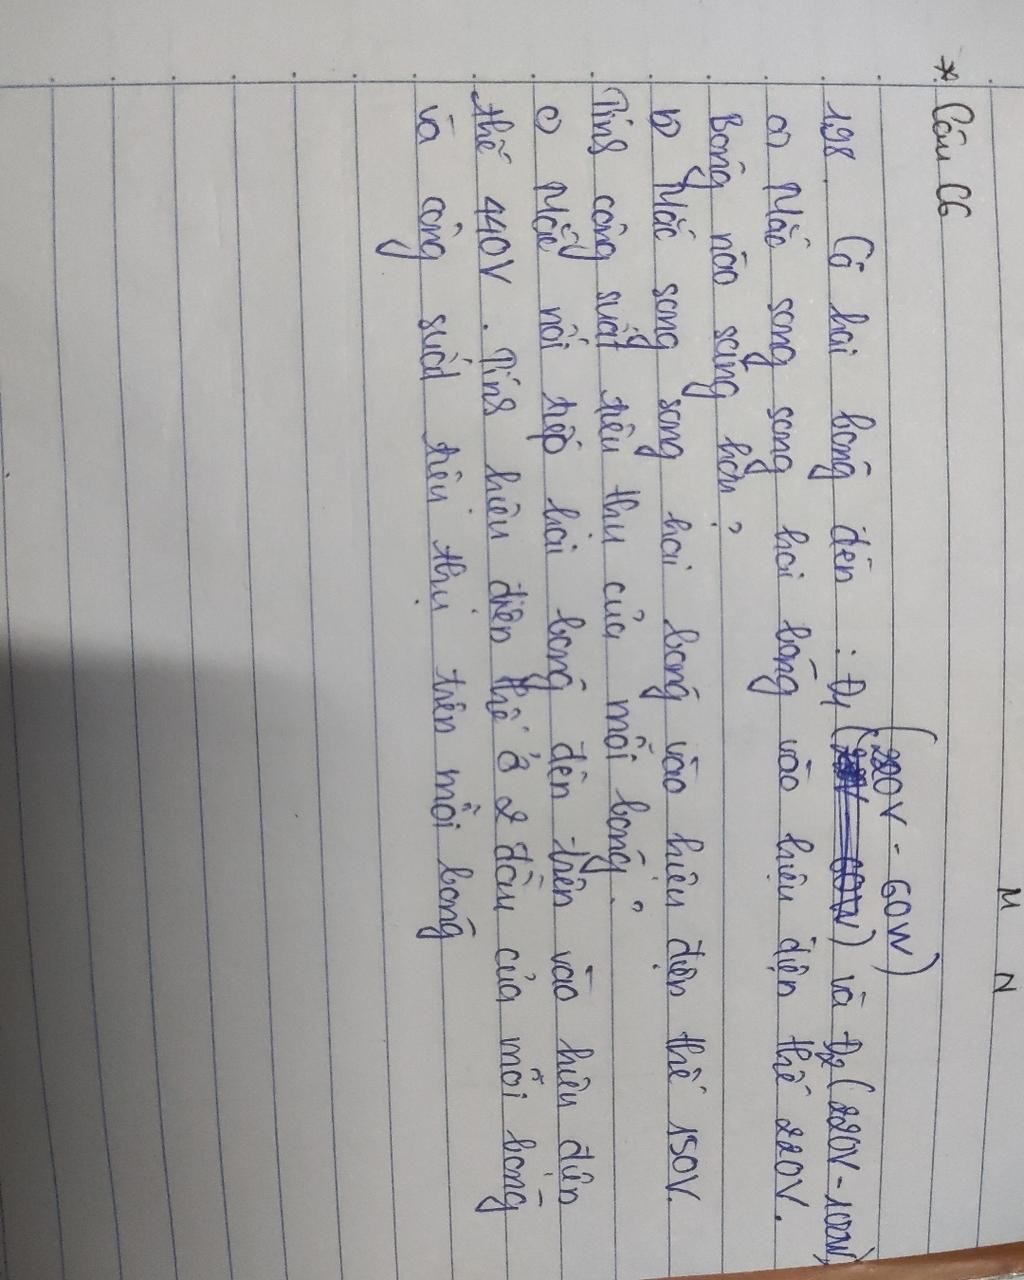 M N
* Câu C6
(220V - 60W)
198. Có hai bóng đèn : Đ1 ( ) và Đ2 (220V - 100W)
a) Mắc song song hai bóng vào hiệu điện thế 220V.
Bóng nào sáng hơn?
b) Mắc song song hai bóng vào hiệu điện thế 150V.
Tính công suất tiêu thụ của mỗi bóng?
c) Mắc nối tiếp hai bóng đèn trên vào hiệu điện
thế 440V. Tính hiệu điện thế ở 2 đầu của mỗi bóng
và công suất tiêu thụ trên mỗi bóng